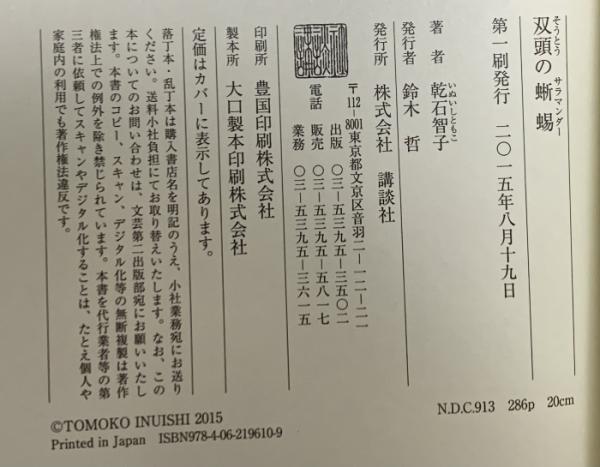 双頭の蜥蜴
そうとう サラマンダー
第一刷発行 二〇一五年八月十九日
著者 乾石智子
いぬいしともこ
発行者 鈴木 哲
発行所 株式会社 講談社
〒112-8001 東京都文京区音羽二-一二-二一
電話 出版 〇三-五三九五-三五〇二
販売 〇三-五三九五-五八一七
業務 〇三-五三九五-三六一五
印刷所 豊国印刷株式会社
製本所 大口製本印刷株式会社
定価はカバーに表示してあります。
落丁本・乱丁本は購入書店名を明記のうえ、小社業務宛にお送り
ください。送料小社負担にてお取り替えいたします。なお、この
本についてのお問い合わせは、文芸第二出版部宛にお願いいたし
ます。本書のコピー、スキャン、デジタル化等の無断複製は著作
権法上での例外を除き禁じられています。本書を代行業者等の第
三者に依頼してスキャンやデジタル化することは、たとえ個人や
家庭内の利用でも著作権法違反です。
N.D.C.913 286p 20cm
©TOMOKO INUISHI 2015
Printed in Japan ISBN978-4-06-219610-9